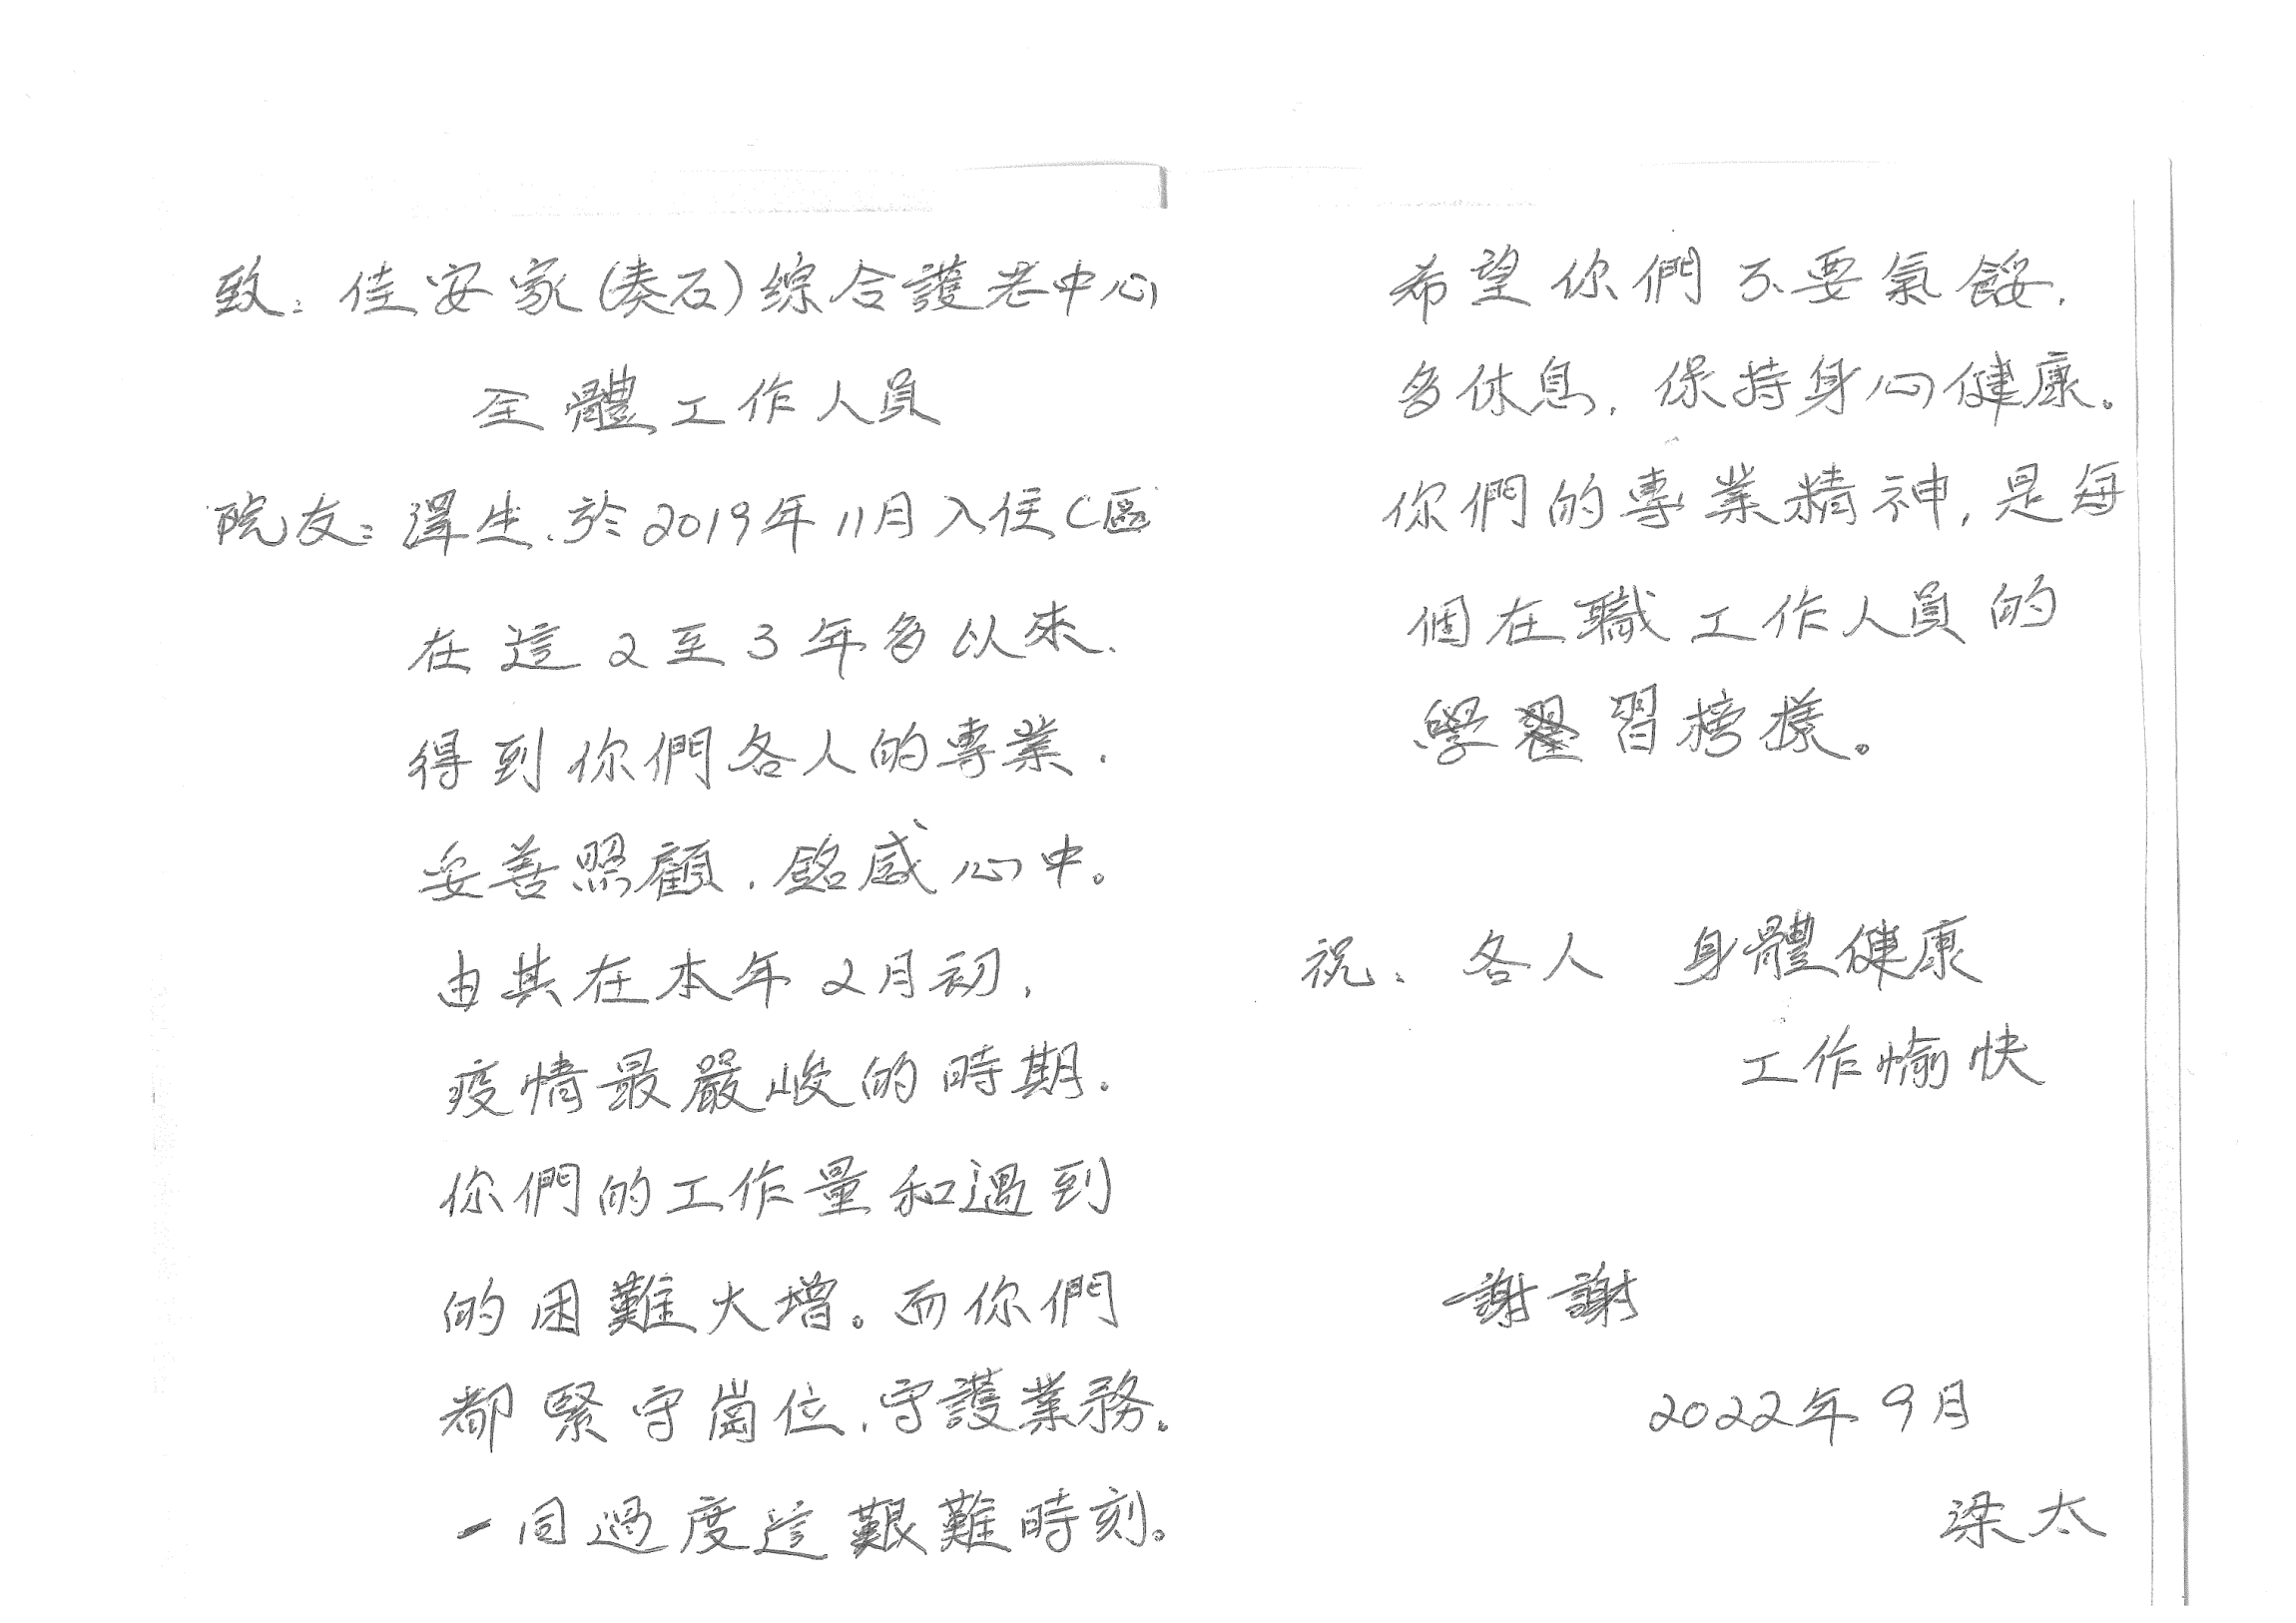 致：佳安家(秦石)綜合護老中心
全體工作人員
院友：澤生.於2019年11月入住C區
在這2至3年多以來.
得到你們各人的專業.
妥善照顧.銘感心中。
由其在本年2月初,
疫情最嚴峻的時期.
你們的工作量和遇到
的困難大增。而你們
都緊守崗位.守護業務。
一同過度這艱難時刻。
希望你們不要氣餒.
多休息.保持身心健康。
你們的專業精神,是每
個在職工作人員的
學習榜樣。
祝：各人 身體健康
工作愉快
謝謝
2022年9月
梁太